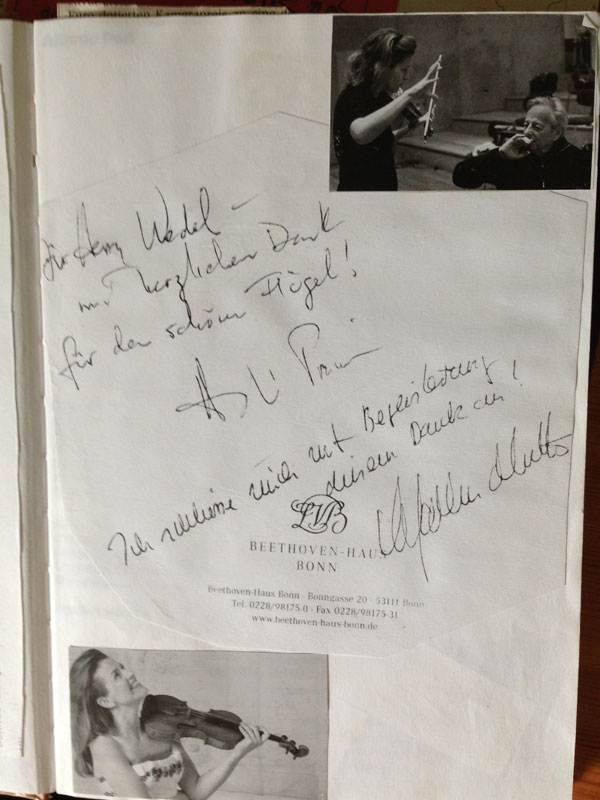 für Herrn Wedel –
mit herzlichem Dank
für den schönen Flügel!
André Previn
Ich schliesse mich mit Begeisterung
diesem Dank an!
LVB
BEETHOVEN-HAUS
BONN
Beethoven-Haus Bonn · Bonngasse 20 · 53111 Bonn
Tel. 0228/98175-0 · Fax 0228/98175-31
www.beethoven-haus-bonn.de